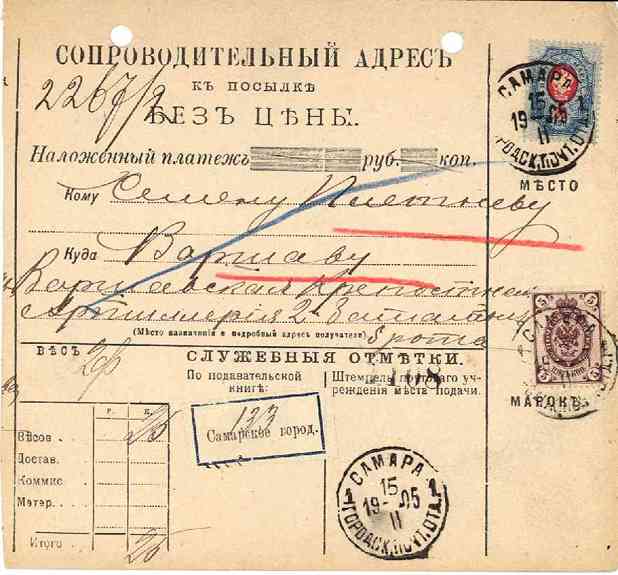 СОПРОВОДИТЕЛЬНЫЙ АДРЕСЪ
КЪ ПОСЫЛКѢ
2267/2
БЕЗЪ ЦѢНЫ.
Наложенный платежъ руб. коп.
Кому Семену
Куда Варшаву
Варшавская Крепостная
Артиллерія 2
(Мѣсто назначенія и подробный адресъ получателя)
рота
САМАРА
15 1
19 05
II
ГОРОДСК. ПОЧТ. ОТД.
МѢСТО
МАРОКЪ
ВѢСЪ 2ф
СЛУЖЕБНЫЯ ОТМѢТКИ.
По подавательской
книгѣ:
Штемпель почтоваго уч-
режденія мѣста подачи.
133
Самарское город.
Р. К.
Вѣсов. 25
Достав.
Коммис.
Матер.
Итого 25
САМАРА
1 15 1
19 05
II
ГОРОДСК. ПОЧТ. ОТД.